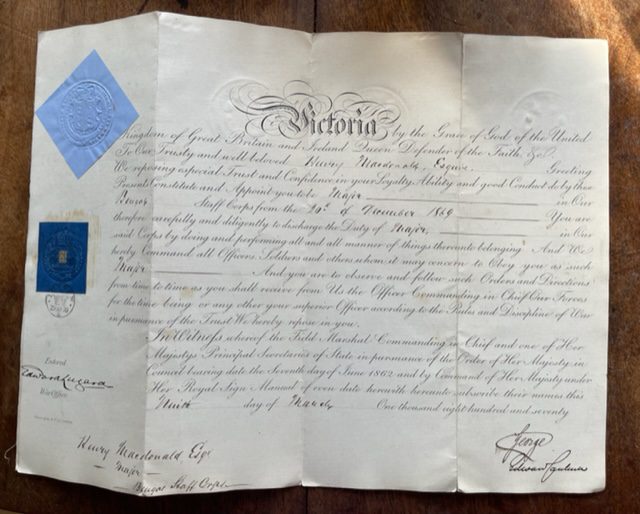 Victoria by the Grace of God of the United
Kingdom of Great Britain and Ireland Queen Defender of the Faith, &c.
To Our Trusty and well beloved Henry Macdonald, Esquire Greeting
We reposing especial Trust and Confidence in your Loyalty, Ability and good Conduct do by these
Presents Constitute and Appoint you to be Major in Our
Bengal Staff Corps from the 20th of December 1869 You are
therefore carefully and diligently to discharge the Duty of Major in Our
said Corps by doing and performing all and all manner of things thereunto belonging And We
hereby Command all Officers Soldiers and others whom it may concern to Obey you as such
Major And you are to observe and follow such Orders and Directions
from time to time as you shall receive from Us the Officer Commanding in Chief Our Forces
for the time being or any other your superior Officer according to the Rules and Discipline of War
in pursuance of the Trust We hereby repose in you.
In Witness whereof the Field Marshal Commanding in Chief and one of Her
Majesty's Principal Secretaries of State in pursuance of the Order of Her Majesty in
Council bearing date the Seventh day of June 1862 and by Command of Her Majesty under
Her Royal Sign Manual of even date herewith hereunto subscribe their names this
Ninth day of March One thousand eight hundred and seventy
George
Edward Cardwell
Entered
Edward Lugard
War Office
Henry Macdonald Esqr
Major
Bengal Staff Corps